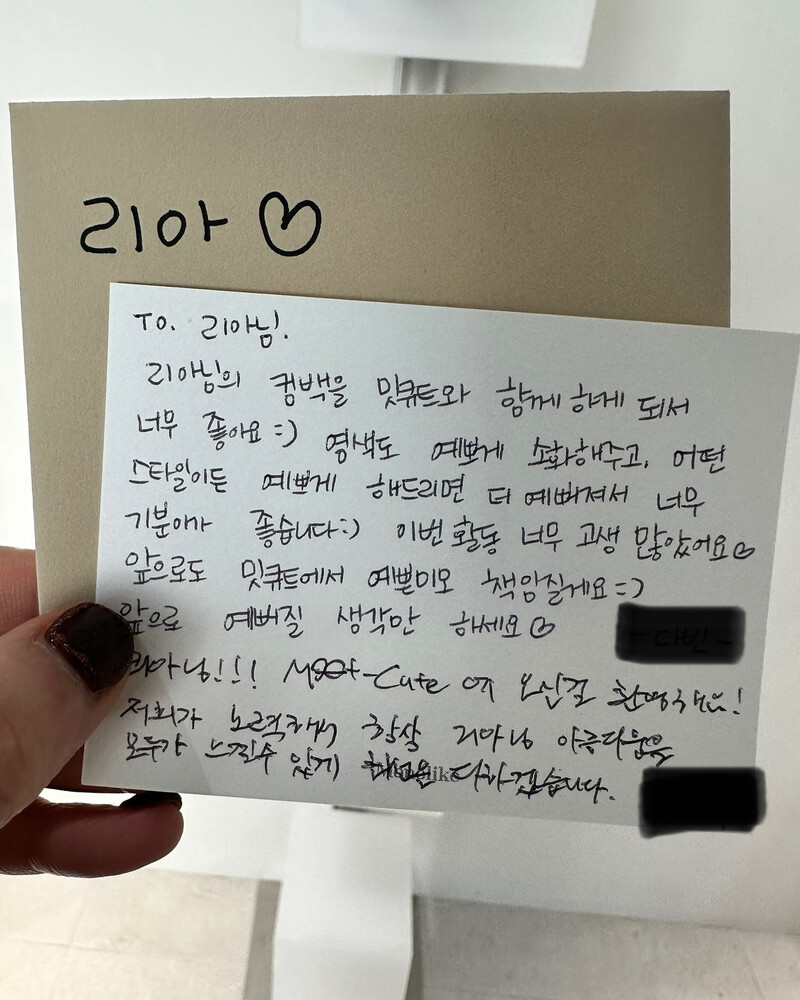 리아 ♡
TO. 리아님.
리아님의 컴백을 밋큐트와 함께 하게 되서
너무 좋아요 =) 염색도 예쁘게 소화해주고, 어떤
스타일이든 예쁘게 해드리면 더 예뻐져서 너무
기분이가 좋습니다 :) 이번 활동 너무 고생 많았어요♡
앞으로도 밋큐트에서 예쁨미모 책임질게요 =)
앞으로 예뻐질 생각만 하세요♡
리아님!!! Meet-Cute 에 오신걸 환영해요!
저희가 노력해서 항상 리아님 아름다움을
모두가 느낄수 있게 다하겠습니다.